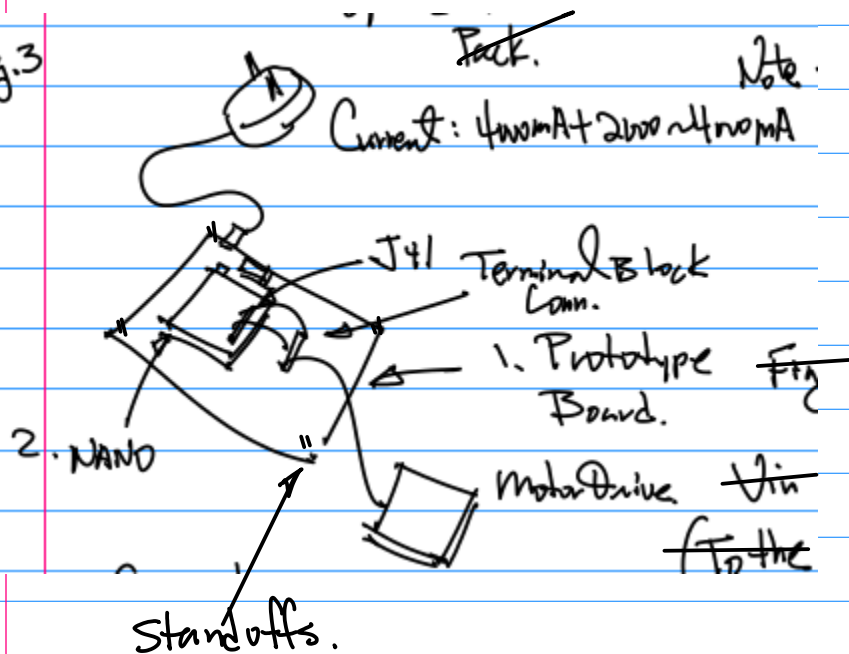 Pack.
g.3
Note.
Current: 4000mA + 2000~4000mA
J41
Terminal Block
Conn.
1. Prototype
Board.
Fig
2. NANO
Motor Drive
Vin
(To the
Standoffs.